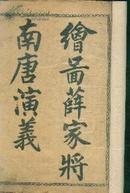 繪啚薛家將
南唐演義